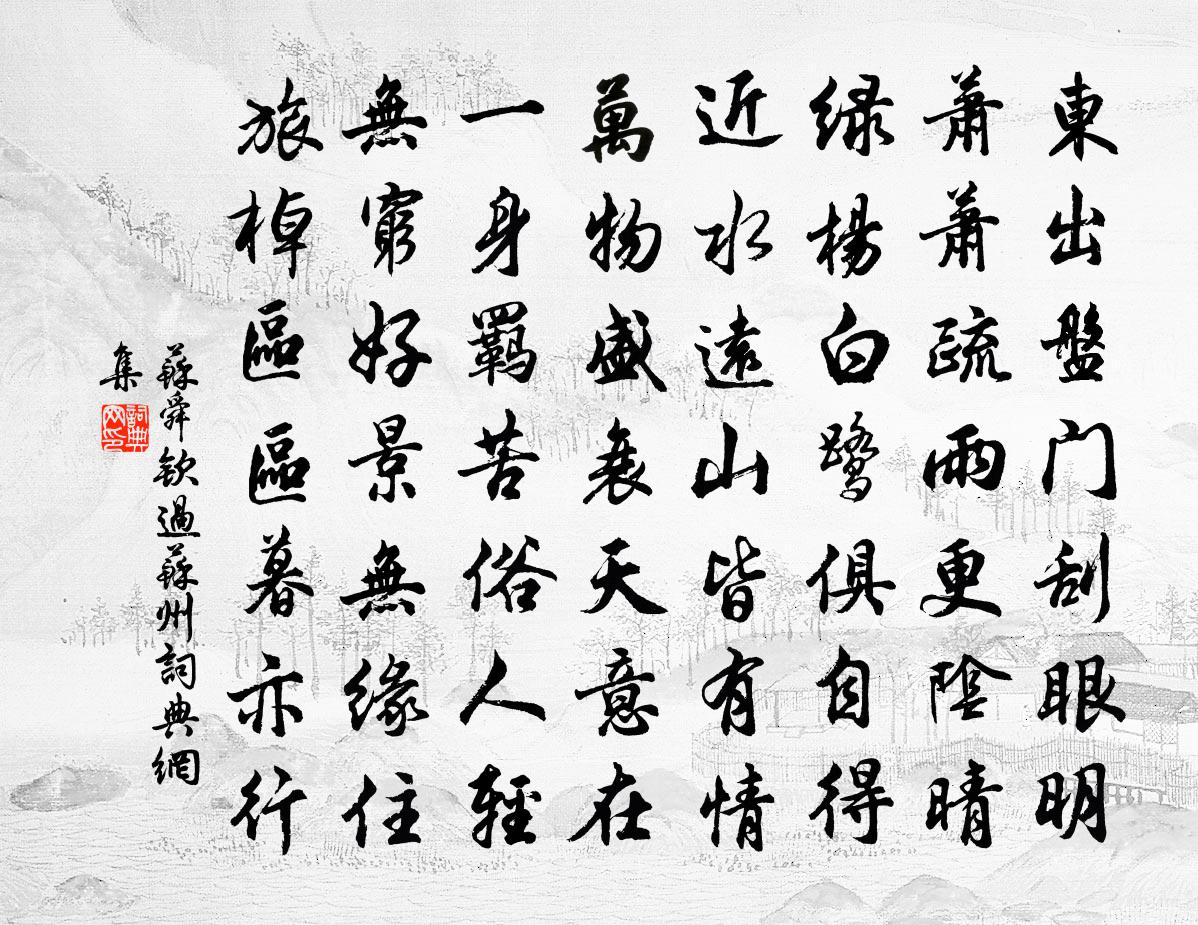 東出盤门刮眼明
蕭蕭疏雨更陰晴
绿楊白鹭俱自得
近水遠山皆有情
萬物盛衰天意在
一身羁苦俗人輕
無窮好景無缘住
旅棹區區暮亦行
蘇舜钦過蘇州詞典網
集
詞典
网印